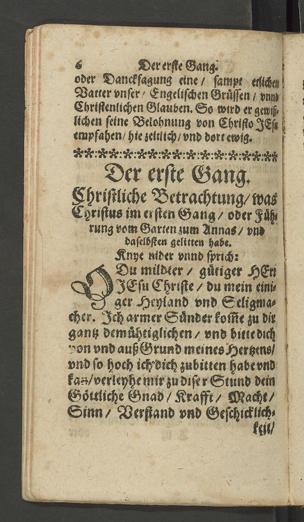 6 Der erste Gang.
oder Dancksagung eine / sampt etlichen
Vatter vnser / Engelischen Grüssen / vnnd
Christenlichen Glauben. So wird er gewiß-
lichen seine Belohnung von Christo JEsu
empfahen / hie zeitlich / vnd dort ewig.
Der erste Gang.
Christliche Betrachtung / was
Christus im ersten Gang / oder Füh-
rung vom Garten zum Annas / vnd
daselbsten gelitten habe.
Knye nider vnnd sprich:
O Du mildter / gütiger HErr
JEsu Christe / du mein eini-
ger Heyland vnd Seligma-
cher. Ich armer Sünder kom̃e zu dir
gantz demüheiglichen / vnd bitte dich
von vnd auß Grund meines Hertzens /
vnd so hoch ich dich zubitten habe vnd
kan / verleyhe mir zu diser Stund dein
Göttliche Gnad / Krafft / Macht /
Sinn / Verstand vnd Geschicklich-
keit /